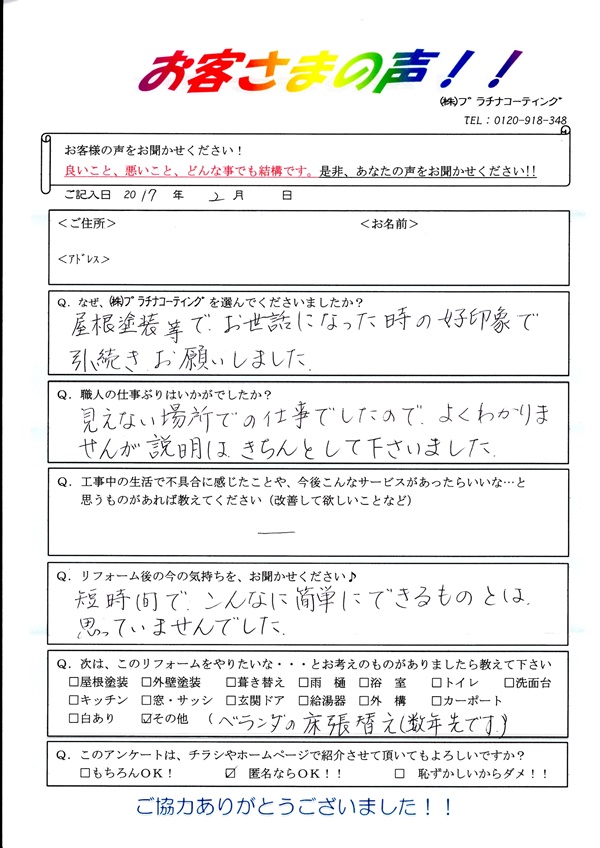 お客さまの声！！
㈱ﾌﾟﾗﾁﾅｺｰﾃｨﾝｸﾞ
TEL：0120-918-348
お客様の声をお聞かせください！
良いこと、悪いこと、どんな事でも結構です。是非、あなたの声をお聞かせください!!
ご記入日 2017 年 2 月 日
＜ご住所＞ ＜お名前＞
＜ｱﾄﾞﾚｽ＞
Q．なぜ、㈱ﾌﾟﾗﾁﾅｺｰﾃｨﾝｸﾞを選んでくださいましたか？
屋根塗装等で、お世話になった時の好印象で
引続き お願いしました。
Q．職人の仕事ぶりはいかがでしたか？
見えない場所での仕事でしたので、よくわかりま
せんが説明は、きちんとして下さいました。
Q．工事中の生活で不具合に感じたことや、今後こんなサービスがあったらいいな…と
思うものがあれば教えてください（改善して欲しいことなど）
―
Q．リフォーム後の今の気持ちを、お聞かせください♪
短時間で、こんなに簡単にできるものとは、
思っていませんでした。
Q．次は、このリフォームをやりたいな・・・とお考えのものがありましたら教えて下さい
□屋根塗装 □外壁塗装 □葺き替え □雨 樋 □浴 室 □トイレ □洗面台
□キッチン □窓・サッシ □玄関ドア □給湯器 □外 構 □カーポート
□白あり ☑その他 （ベランダの床張替え(数年先です。)
Q．このアンケートは、チラシやホームページで紹介させて頂いてもよろしいですか？
□もちろんOK！ ☑ 匿名ならOK！！ □ 恥ずかしいからダメ！！
ご協力ありがとうございました！！